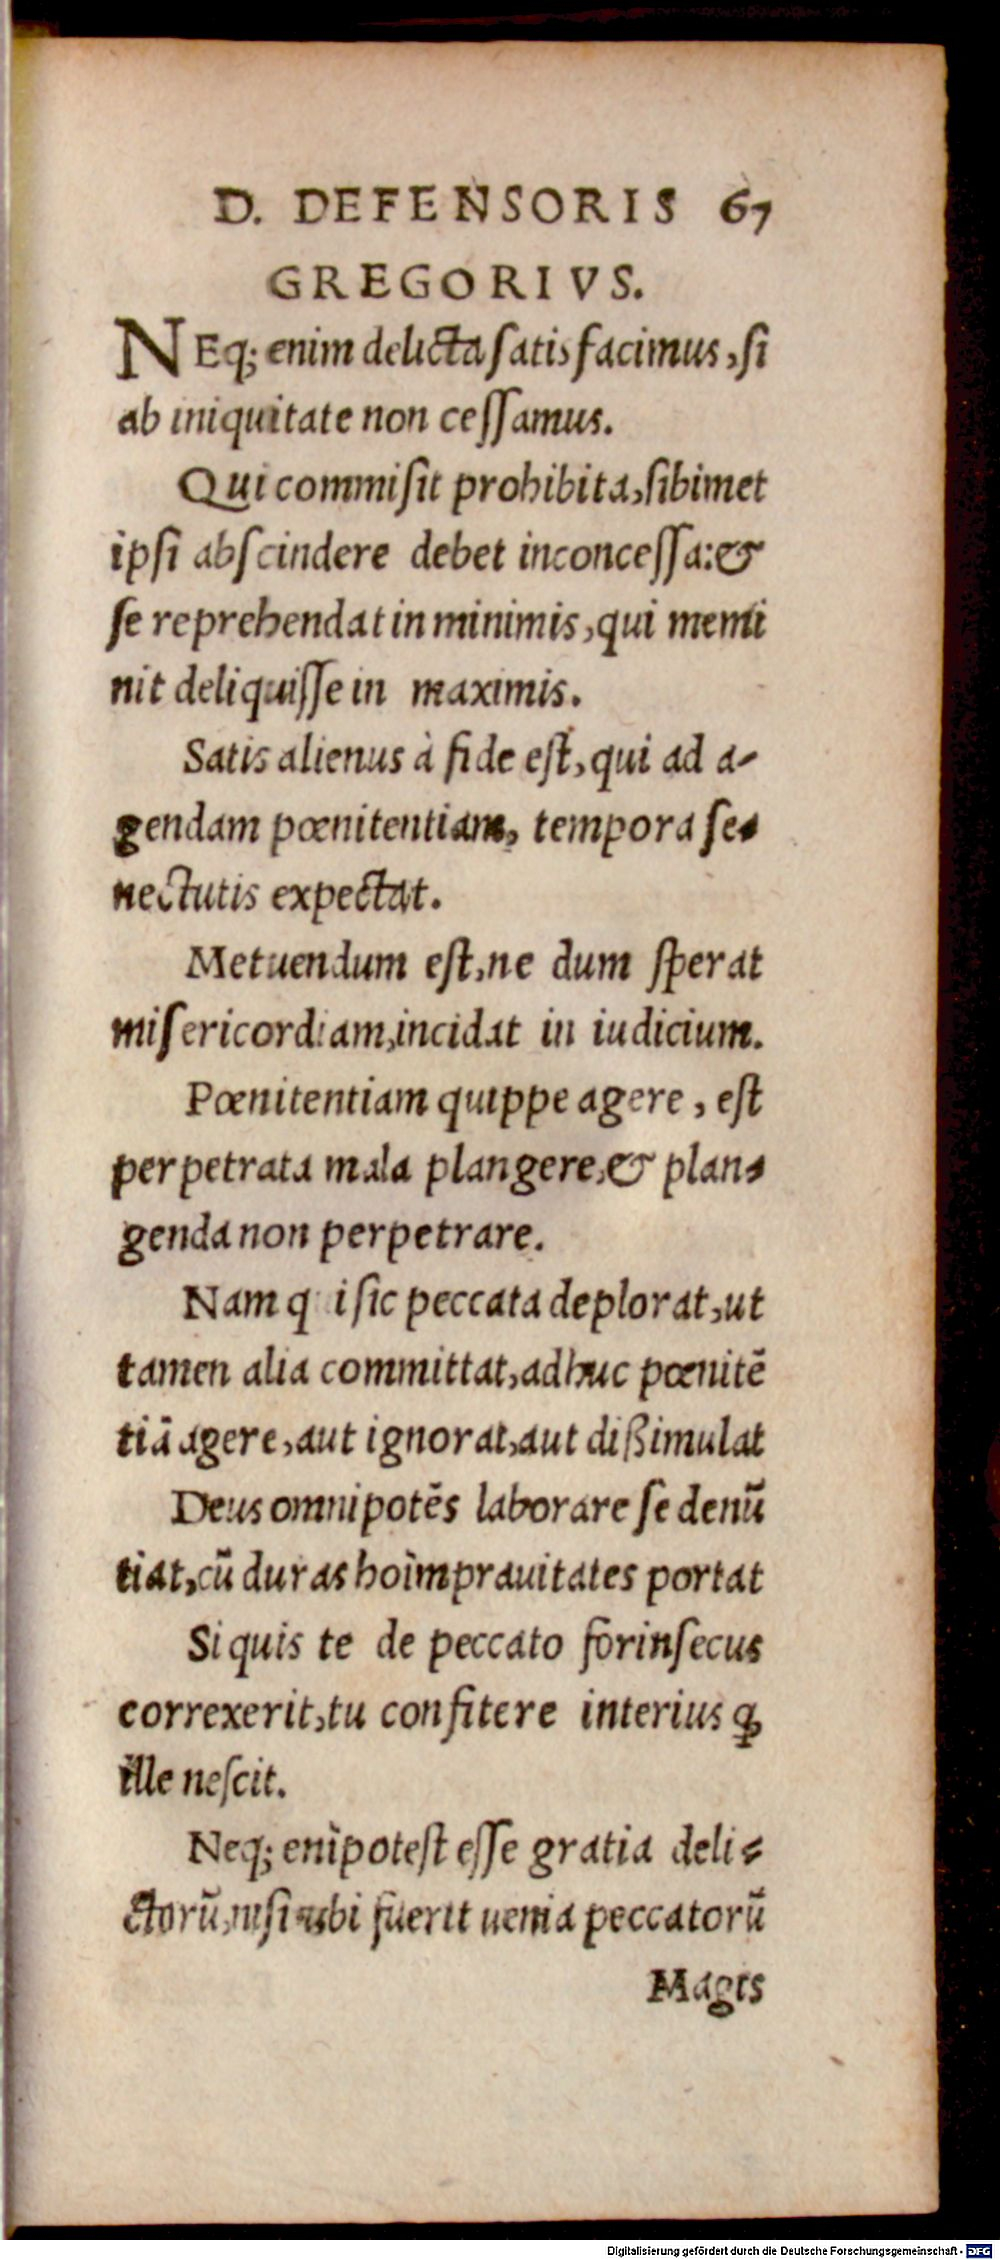 D. DEFENSORIS 67
GREGORIVS.
NEq; enim delicta satisfacimus, si
ab iniquitate non cessamus.
Qui commisit prohibita, sibimet
ipsi abscindere debet inconcessa: &
se reprehendat in minimis, qui memi
nit deliquisse in maximis.
Satis alienus à fide est, qui ad a-
gendam pœnitentiam, tempora se-
nectutis expectat.
Metuendum est, ne dum sperat
misericordiam, incidat in iudicium.
Pœnitentiam quippe agere, est
perpetrata mala plangere, & plan-
genda non perpetrare.
Nam q i sic peccata deplorat, ut
tamen alia committat, adhuc pœnitē
tiā agere, aut ignorat, aut dißimulat
Deus omnipotēs laborare se denū
tiat, cū duras hoīm prauitates portat
Si quis te de peccato forinsecus
correxerit, tu confitere interius ꝙ
ille nescit.
Neq; enī potest esse gratia deli-
ctorū, nisi ubi fuerit uenia peccatorū
Magis
Digitalisierung gefördert durch die Deutsche Forschungsgemeinschaft - DFG